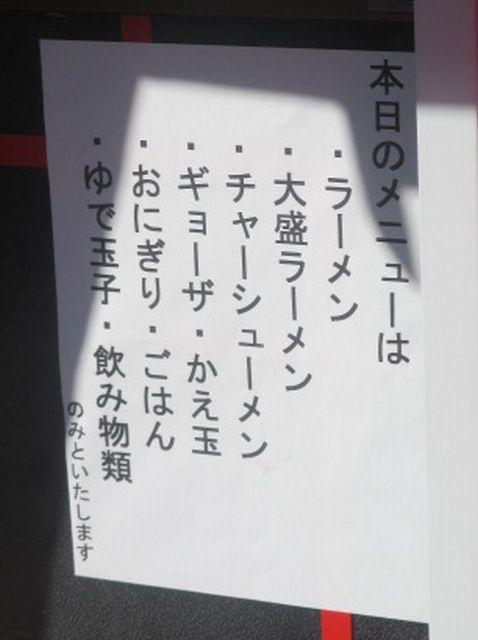 本日のメニューは
・ラーメン
・大盛ラーメン
・チャーシューメン
・ギョーザ・かえ玉
・おにぎり・ごはん
・ゆで玉子・飲み物類
のみといたします